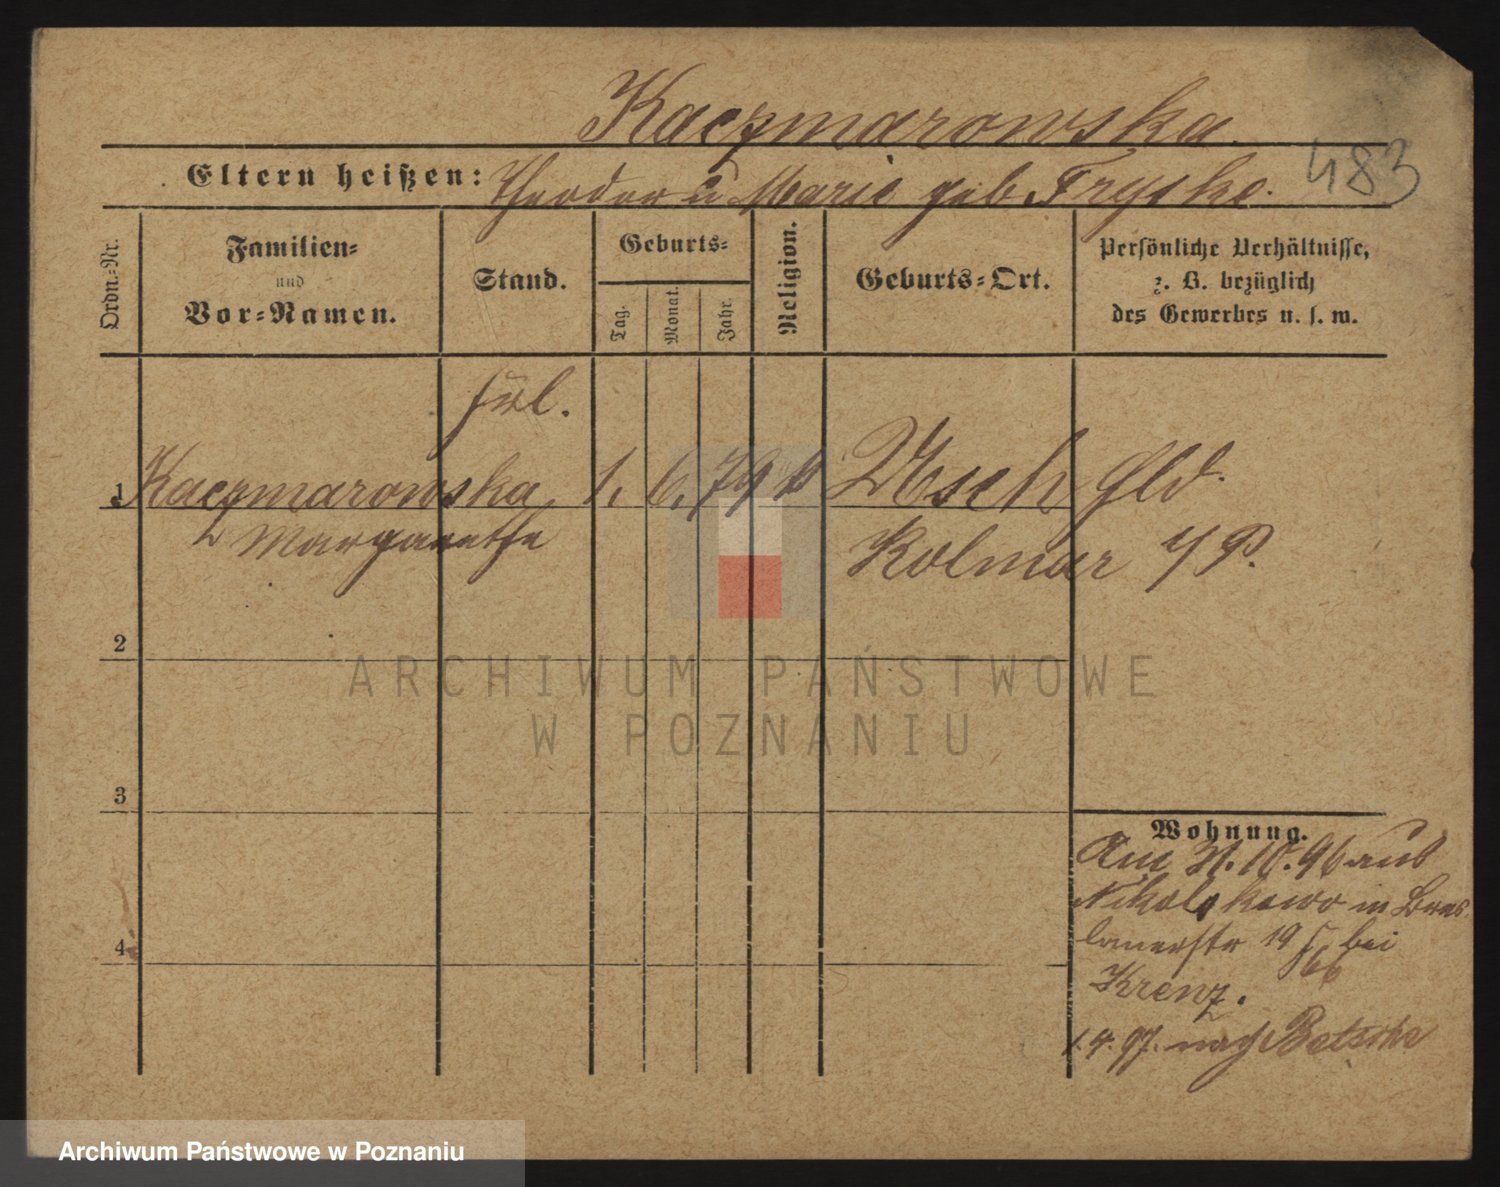 Kaczmarowska.
Eltern heißen: Theodor u Marie geb Fryske.
483
Ordn.-Nr.
Familien-
und
Vor-Namen.
Stand.
Geburts-
Tag.
Monat.
Jahr.
Religion.
Geburts-Ort.
Persönliche Verhältnisse,
z. B. bezüglich
des Gewerbes u. s. w.
frl.
1 Kaczmarowska, 1. 6. 79 Usch
Margarethe
Kolmar i/P.
2
3
4
Wohnung.
Am 21. 10. 96 aus
Nikolskowo in Bres
lauerstr 19 bei
Krenz.
1. 4. 97. nach Betsche
ARCHIWUM PAŃSTWOWE
W POZNANIU
Archiwum Państwowe w Poznaniu